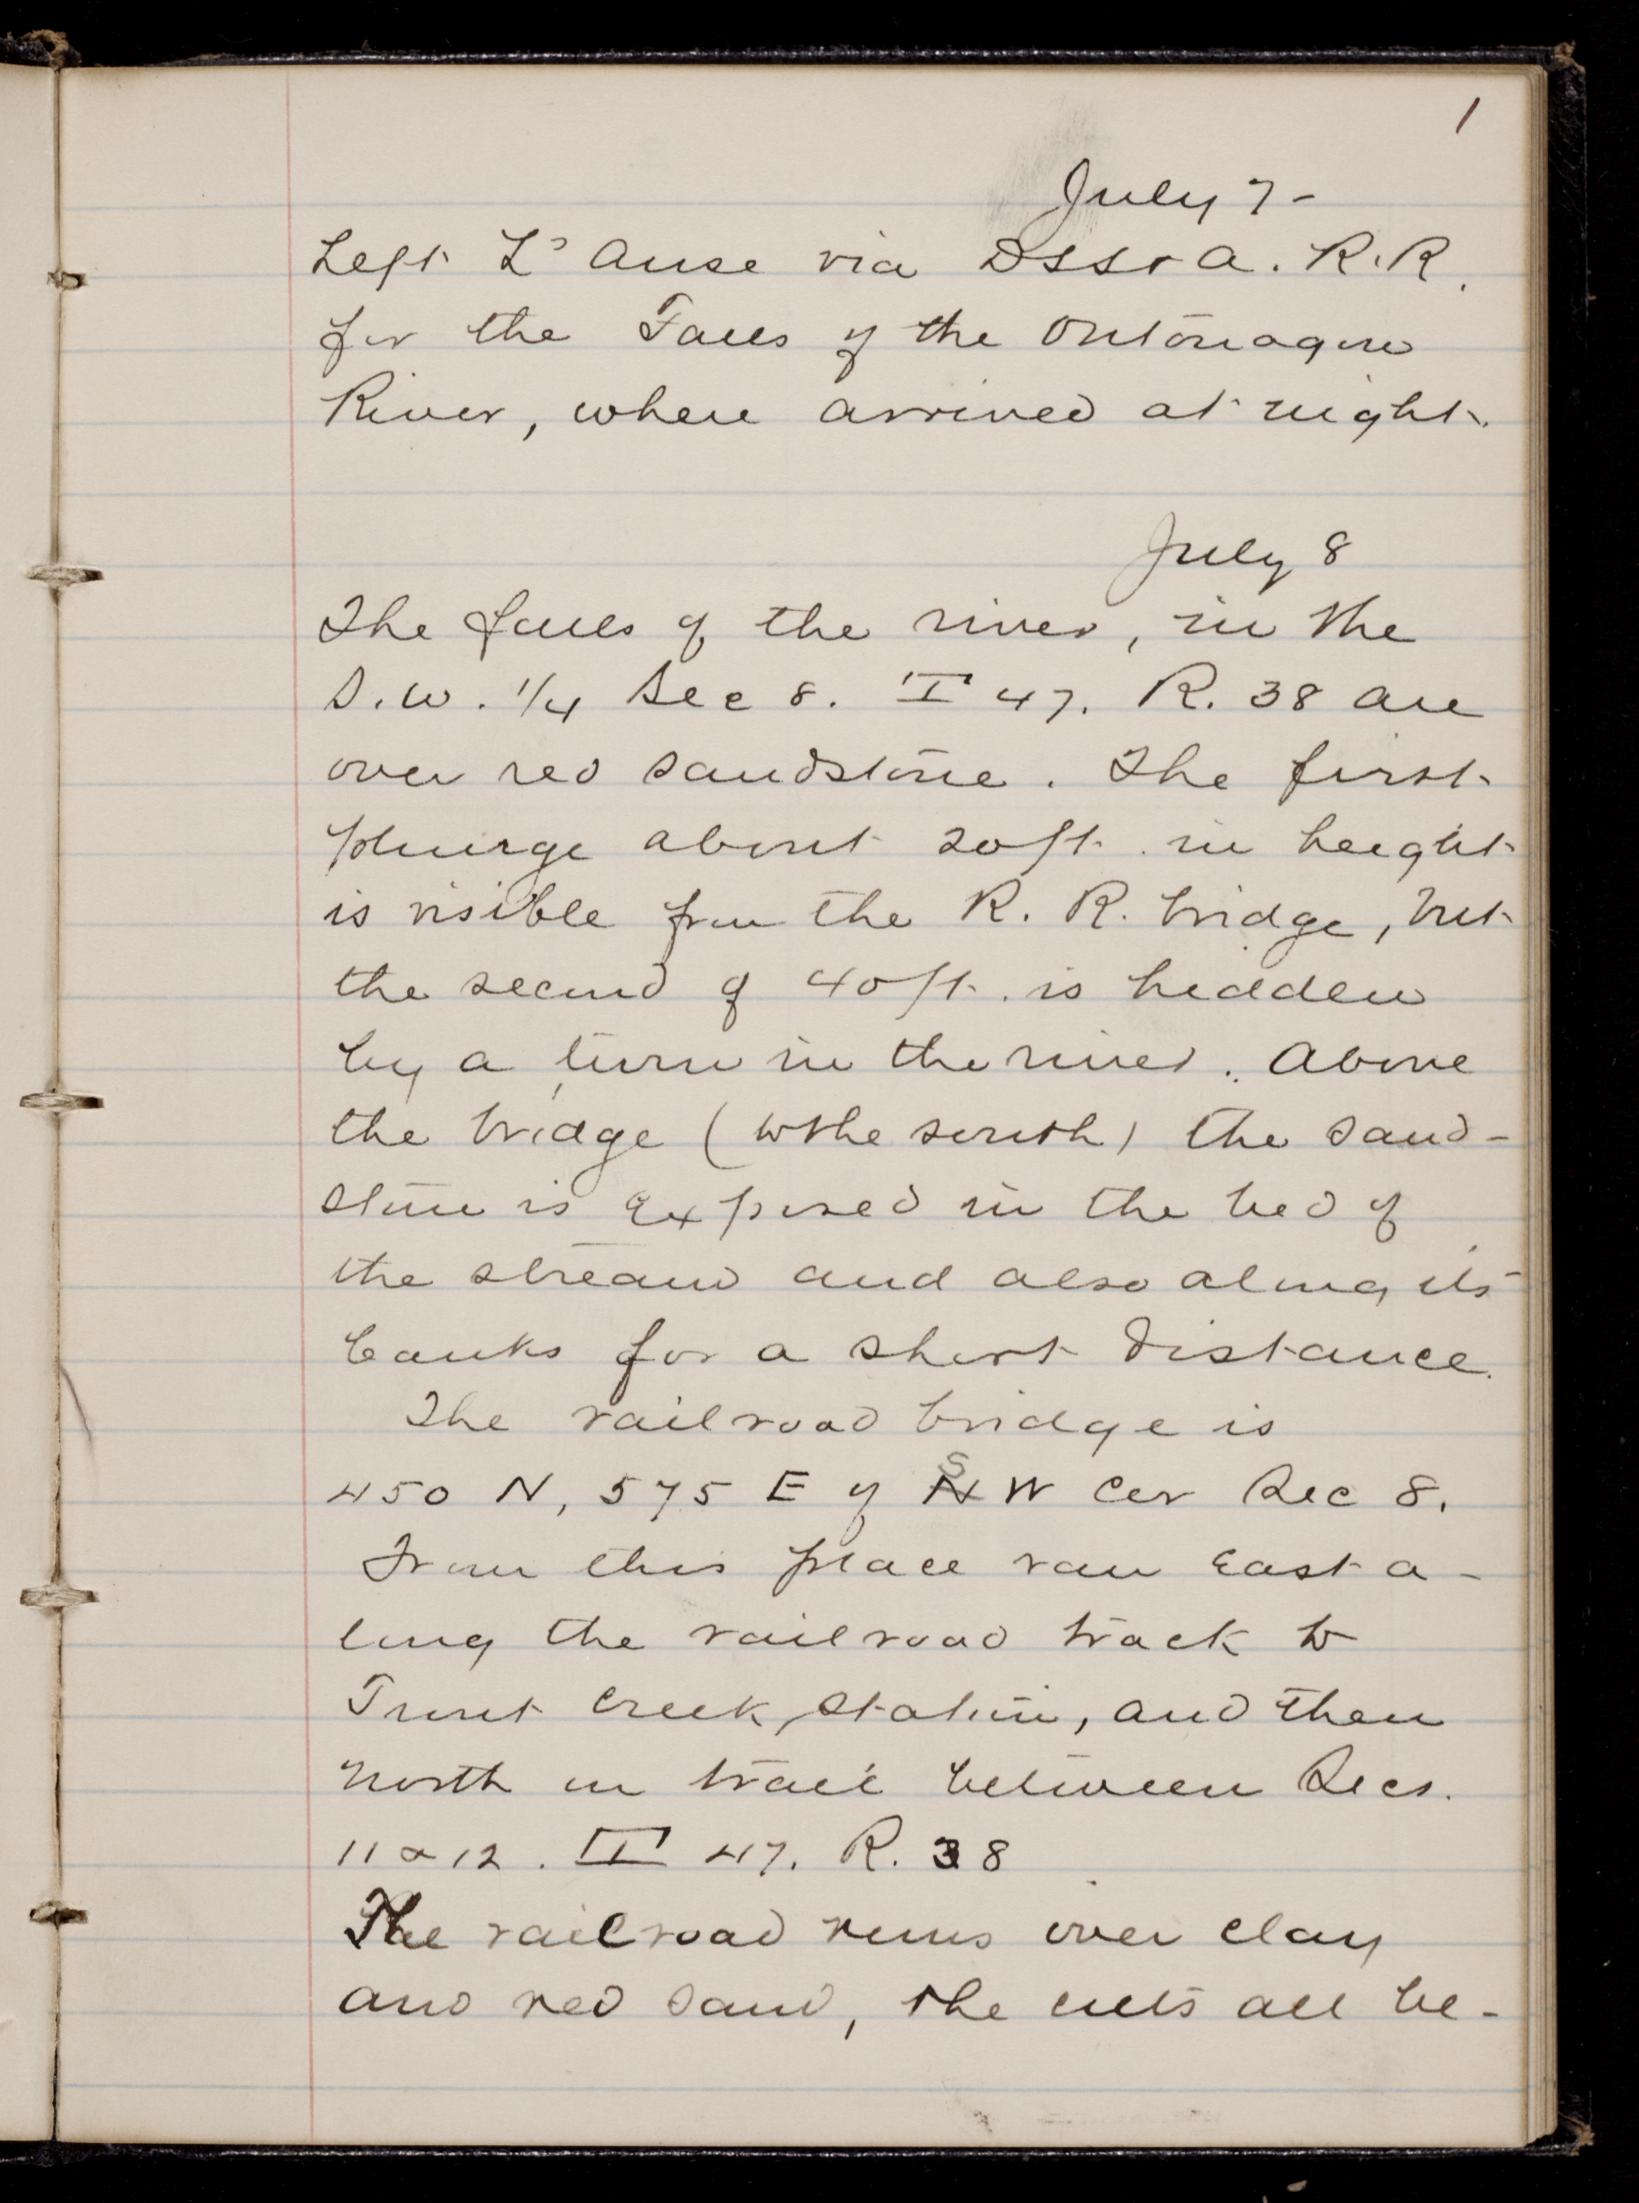 1
July 7-
Left L'Anse via DSS & A. R.R.
for the Falls of the Ontonagon
River, where arrived at night.
July 8
The falls of the river, in the
S.W. 1/4 Sec 8. T 47. R. 38 are
over red sandstone. The first
plunge about 20 ft. in height
is visible from the R. R. bridge, but
the second of 40 ft. is hidden
by a turn in the river. Above
the bridge (to the south) the sand-
stone is exposed in the bed of
the stream and also along its
banks for a short distance.
The railroad bridge is
450 N, 575 E of SW Cor Sec 8.
From this place ran East a-
long the railroad track to
Trout Creek Station, and then
north on trail between Secs.
11 & 12. T 47. R. 38
The railroad runs over clay
and red sand, the cuts all be-